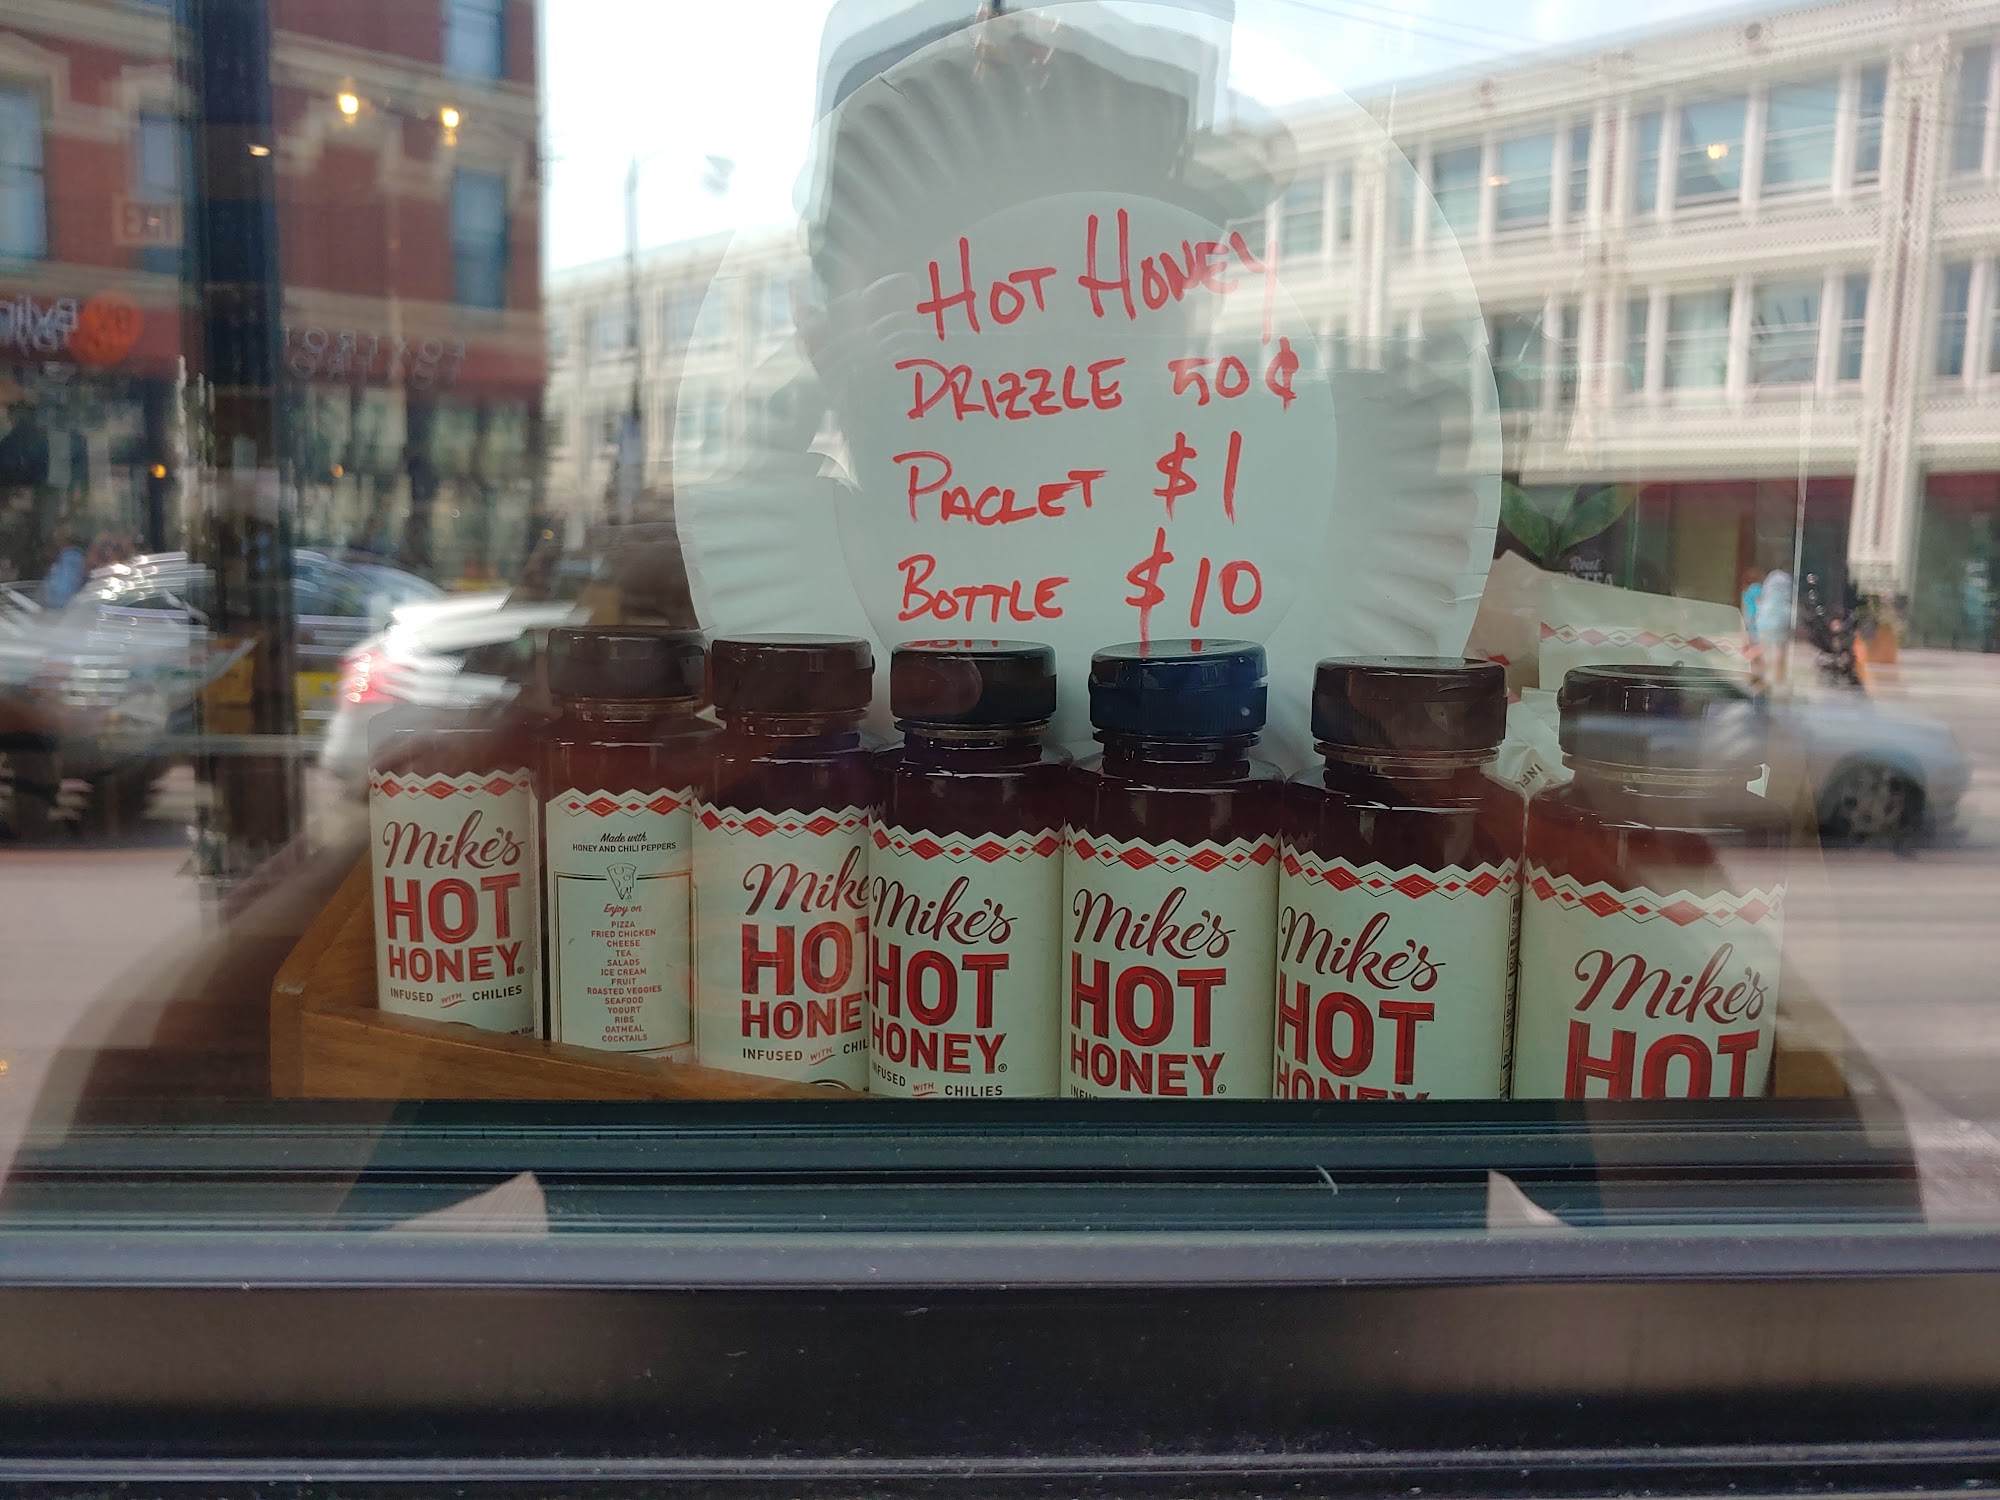 HOT HONEY
DRIZZLE 50¢
PACKET $1
BOTTLE $10
Real
TEA
Mike's
HOT
HONEY®
INFUSED WITH CHILIES
Made with
HONEY AND CHILI PEPPERS
Enjoy on
PIZZA
FRIED CHICKEN
CHEESE
TEA
SALADS
ICE CREAM
FRUIT
ROASTED VEGGIES
SEAFOOD
YOGURT
RIBS
OATMEAL
COCKTAILS
Mike
HOT
HONE
INFUSED WITH CHIL
Mike's
HOT
HONEY®
INFUSED WITH CHILIES
Mike's
HOT
HONEY®
Mike's
HOT
HONEY
Mike's
HOT
INF
FOXTROT